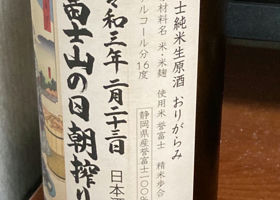 士純米生原酒 おりがらみ
材料名 米・米麹 使用米 誉富士 精米歩合
ルコール分16度
静岡県産誉富士100%
令和三年二月二十三日
日本酒
富士山の日朝搾り